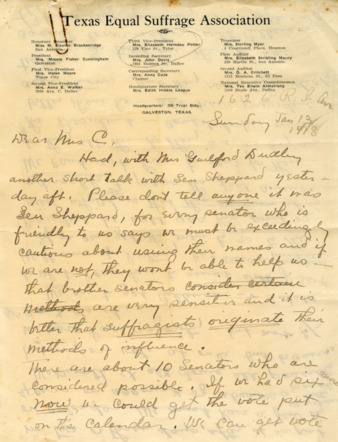 Texas Equal Suffrage Association
Honorary President
Miss M. Eleanor Brackenridge
San Antonio
President
Mrs. Minnie Fisher Cunningham
Galveston
First Vice-President
Mrs. Helen Moore
Texas City
Second Vice-President
Mrs. Anna E. Walker
Third Vice-President
Mrs. Elizabeth Herndon Potter
Tyler
Recording Secretary
Mrs. John Davis
Dallas
Corresponding Secretary
Mrs. Anna Cade
Headquarters Secretary
Mrs. Edith Hinkle League
Treasurer
Mrs. Sterling Myer
Houston
First Auditor
Mrs. Elizabeth Stribling Maury
San Antonio
Second Auditor
Mrs. D. A. Critchett
El Paso
National Executive Committeeman
Mrs. Tex Elwin Armstrong
Dallas
Headquarters: 26 Trust Bldg.
GALVESTON, TEXAS.
Sunday Jan
Dear Mrs C.
Had, with Mrs Guilford Dudley
another short talk with Sen Sheppard yester-
day aft. Please don't tell anyone it was
Sen Sheppard, for every senator who is
friendly to us says we must be exceedingly
cautious about using their names and if
we are not, they wont be able to help us —
that brother senators consider certain
methods are very sensitive and it is
better that suffragists originate their
methods of influence.
There are about 10 Senators who are
considered possible. If we had six
now we could get the vote put
on the Calendar. We can get vote